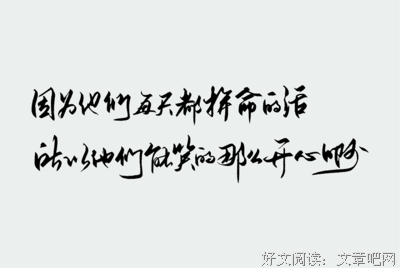 因为他们每天都拼命的活
所以他们能笑的那么开心
好文阅读：文章吧网